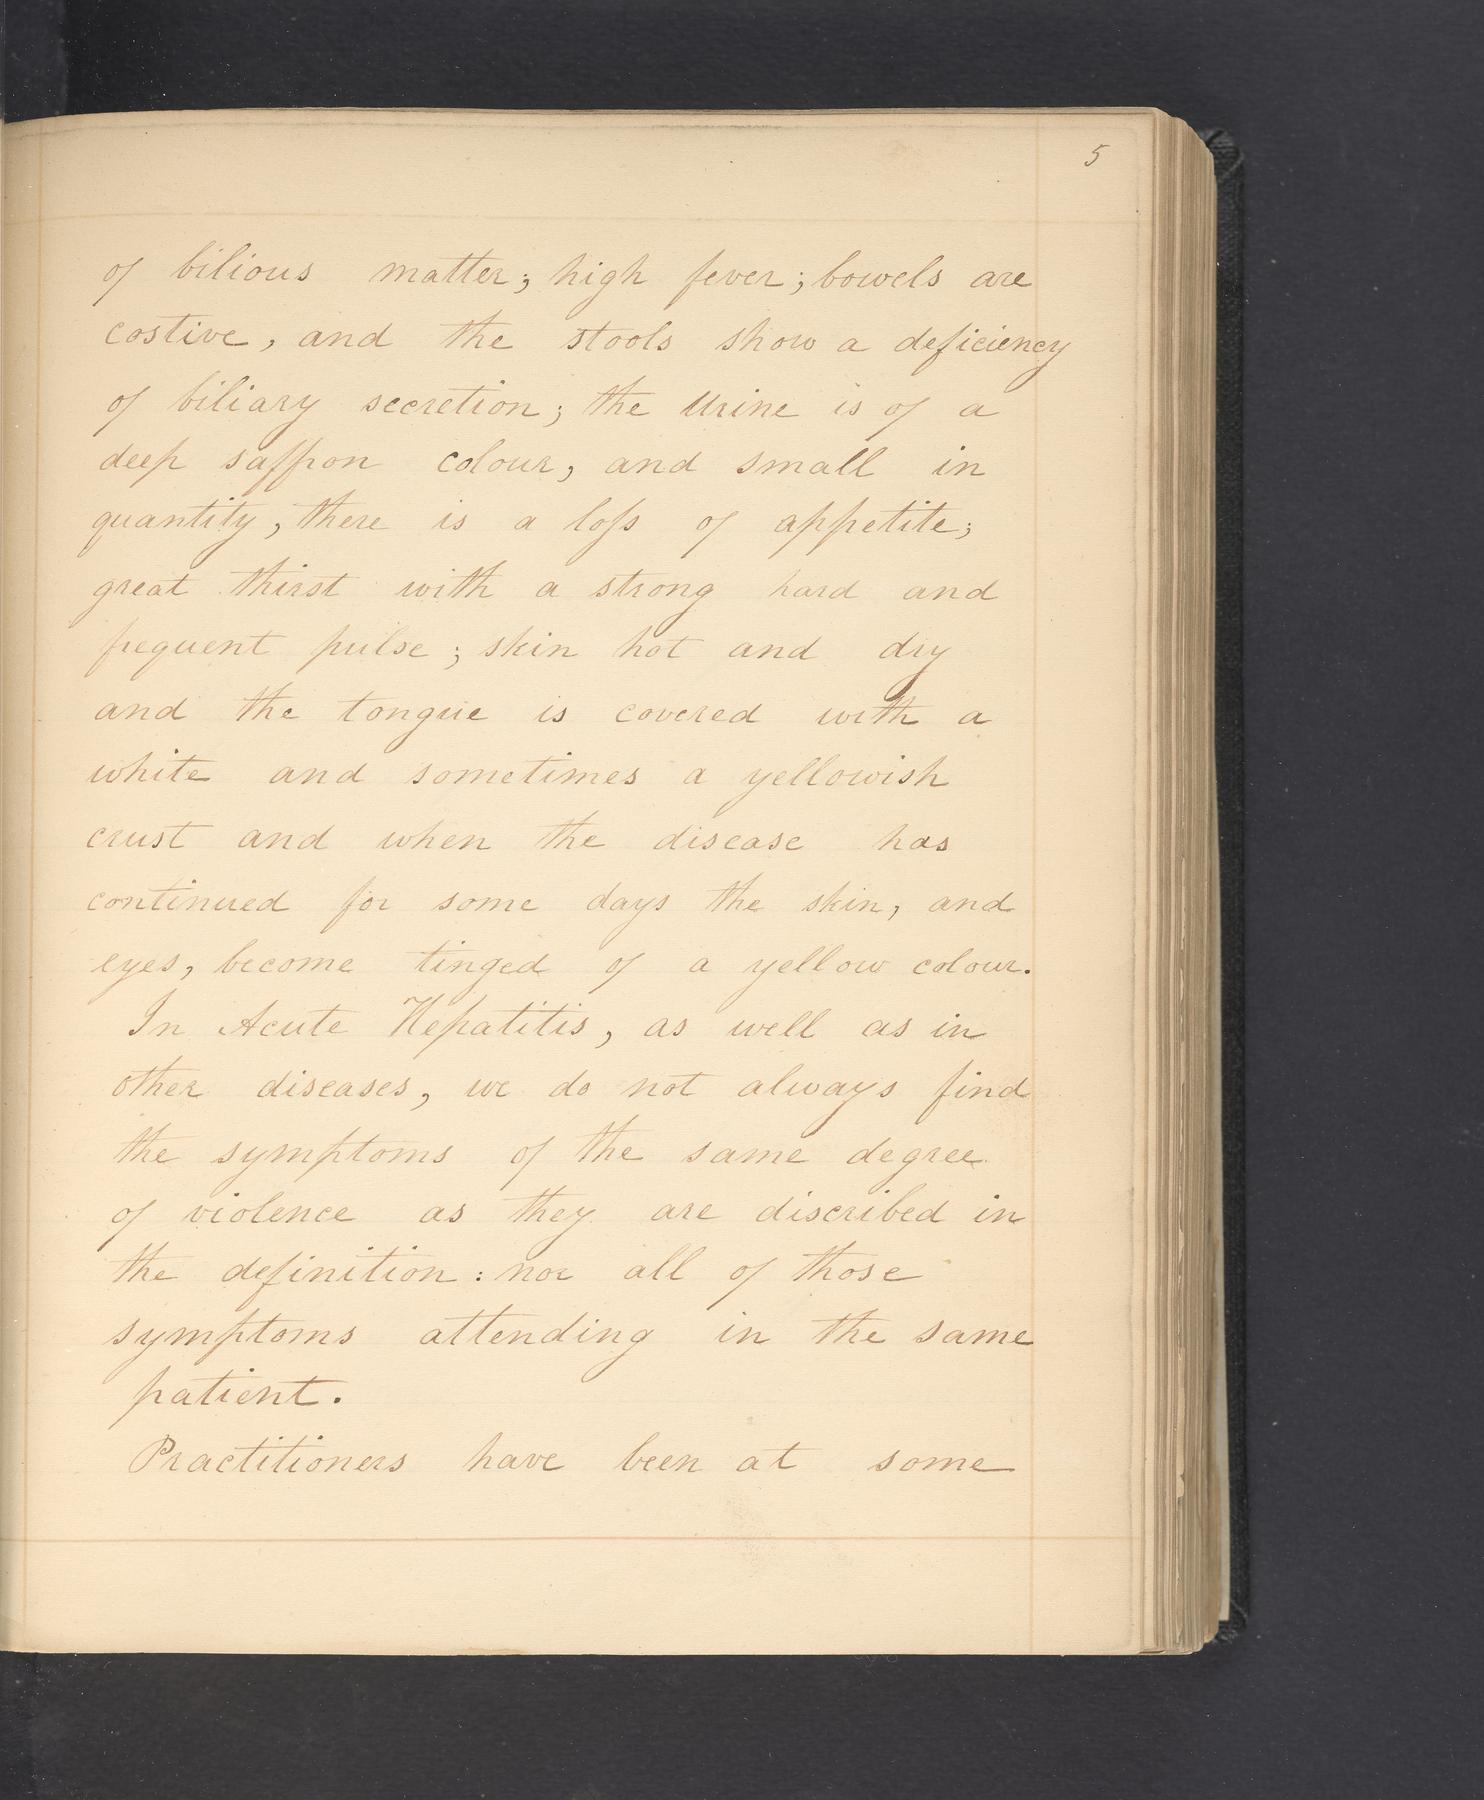 5
of bilious matter; high fever; bowels are
costive, and the stools show a deficiency
of biliary secretion; the Urine is of a
deep saffron colour, and small in
quantity, there is a loſs of appetite;
great thirst with a strong hard and
frequent pulse; skin hot and dry
and the tongue is covered with a
white and sometimes a yellowish
crust and when the disease has
continued for some days the skin, and
eyes, become tinged of a yellow colour.
In Acute Hepatitis, as well as in
other diseases, we do not always find
the symptoms of the same degree
of violence as they are discribed in
the definition: nor all of those
symptoms attending in the same
patient.
Practitioners have been at some